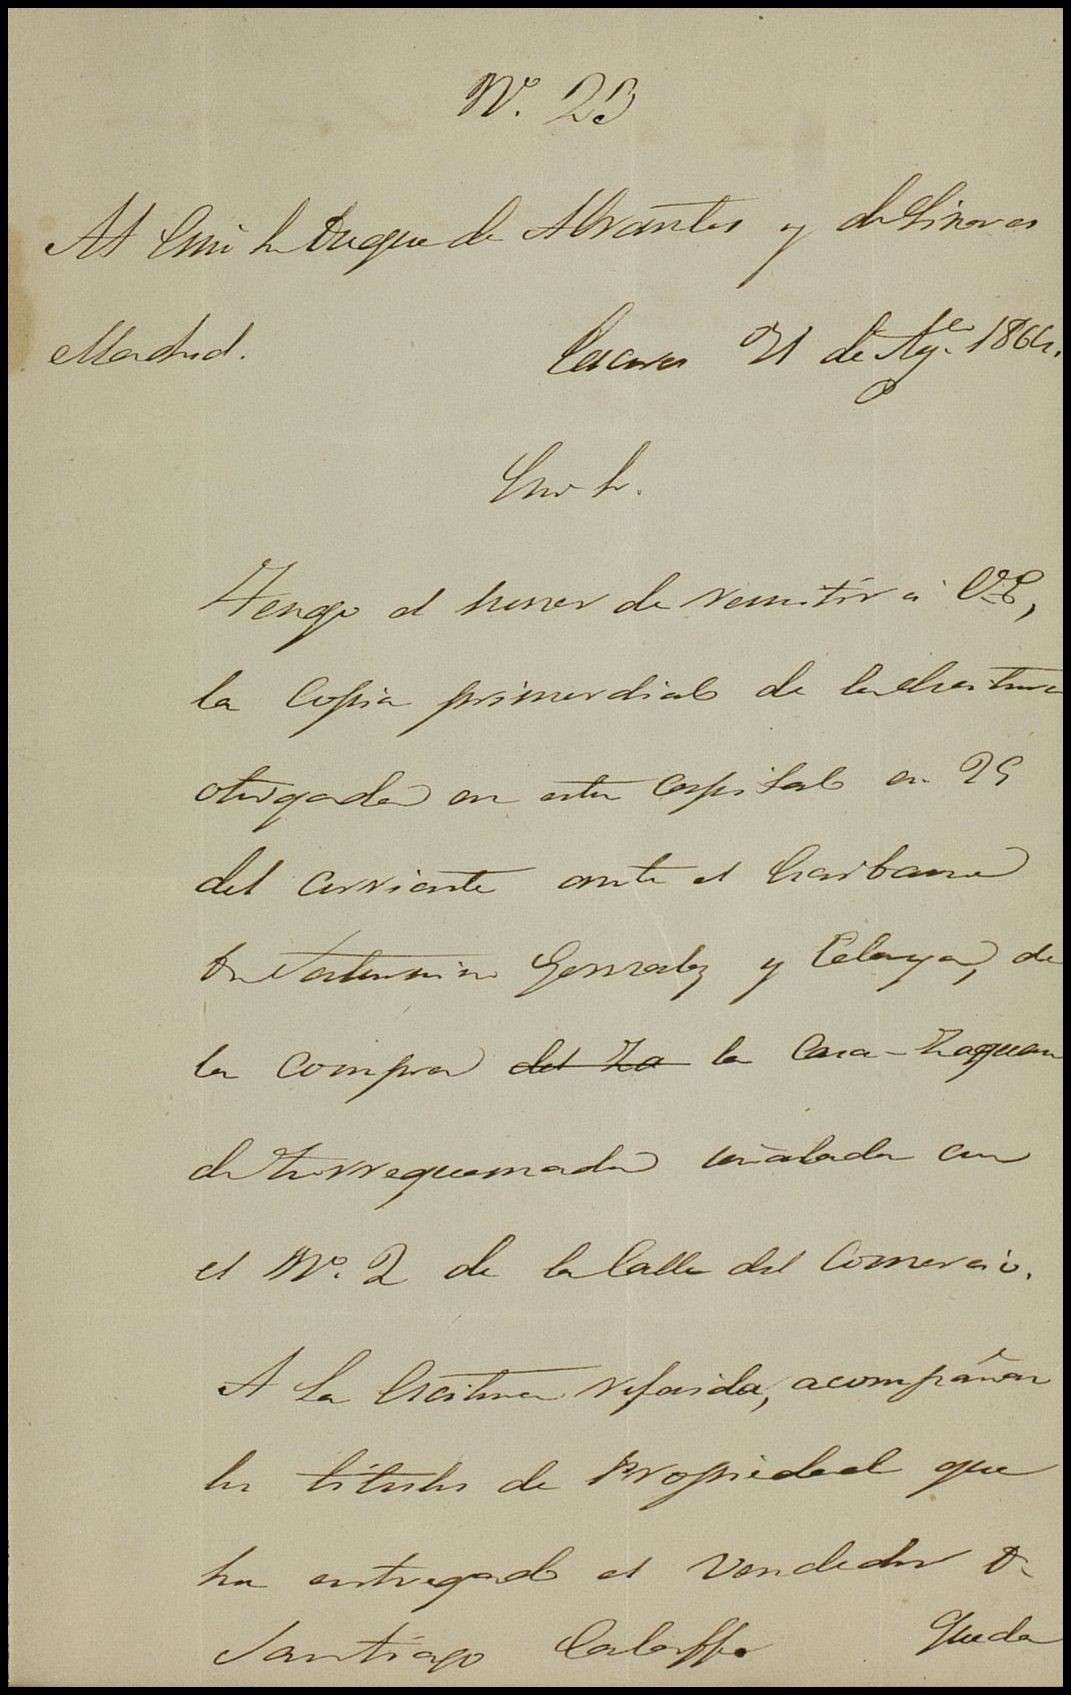 Nº. 23
Al Exmo Sr Duque de Abrantes y de Linares
Madrid. Caceres 31 de Agto 1864.
Exmo Sr.
Tengo el honor de remitir á V.E,
la Copia primordial de la Escritura
otorgada en esta Capital en 29
del corriente ante el Escribano
Dn Saturnino Gonzalez y Celaya, de
la compra del Za la Casa-Zaguan
de Torrequemada señalada con
el Nº. 2 de la Calle del Comercio.
A la Escritura referida, acompañan
los titulos de Propiedad que
ha entregado el Vendedor Dn
Santiago Calaff Queda